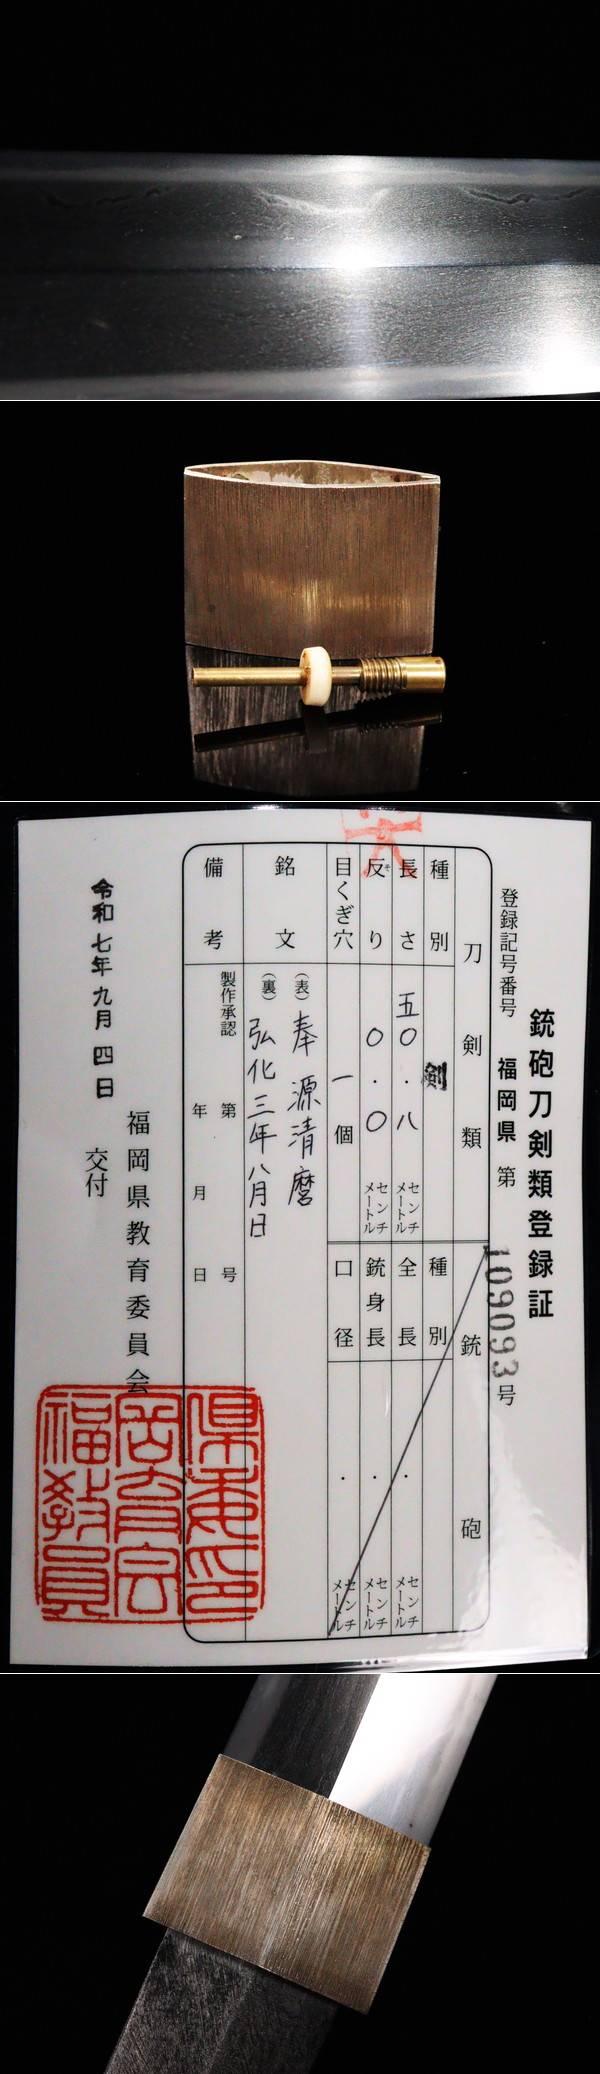 銃砲刀剣類登録証
登録記号番号 福岡県 第 109093 号
刀剣類
種別 剣
長さ 五〇.八 センチメートル
反り 〇.〇 センチメートル
目くぎ穴 一個
銘文 (表) 奉 源清麿
(裏) 弘化三年八月日
備考 製作承認 第 号
年 月 日
銃砲
種別
全長 . センチメートル
銃身長 . センチメートル
口径 . センチメートル
令和七年九月四日
交付
福岡県教育委員会
県委印
岡育会
福教員